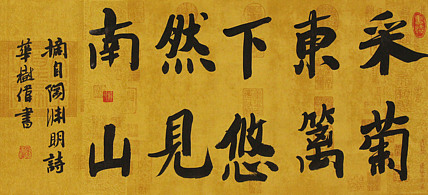 采菊
東篱
下悠
然見
南山
摘自陶渊明詩
華樹偉書